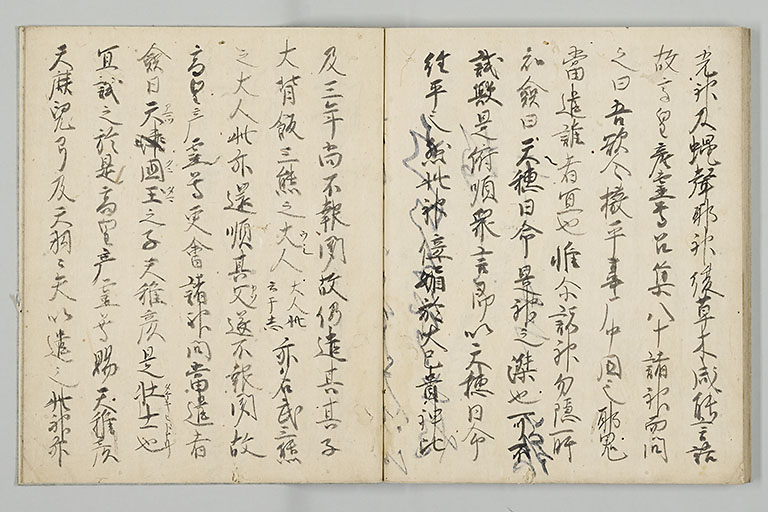 光神及蝿聲邪神復草木咸能言語
故高皇産靈尊召集八十諸神而問
之曰吾欲令撥平葦原中国之邪鬼
當遣誰者宜也惟尓諸神勿隠所
知僉曰天穂日命是神之傑也可不
試歟是俯順衆言即以天穂日命
往平之然此神侫媚於大己貴神比
及三年尚不報聞故仍遣其子
大背飯三熊之大人大人此云于志亦名武三熊
之大人此亦還順其父遂不報聞故
高皇産靈尊更會諸神問當遣者
僉曰天津国玉之子天稚彦是壮士也
宜試之於是高皇産靈尊賜天稚彦
天麻兒弓及天羽々矢以遣之此神亦